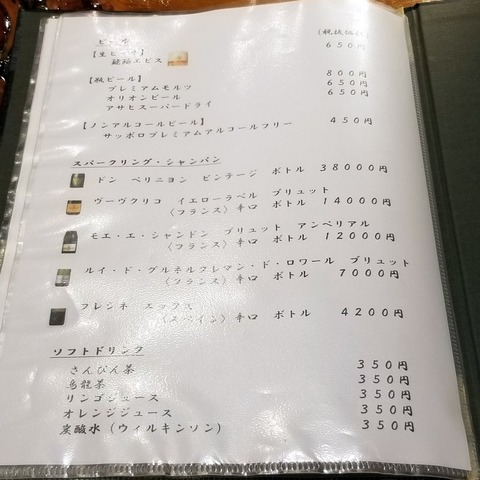 ビール （税抜価格）
【生ビール】 650円
琥珀エビス
【瓶ビール】 800円
プレミアムモルツ 650円
オリオンビール 650円
アサヒスーパードライ
【ノンアルコールビール】 450円
サッポロプレミアムアルコールフリー
スパークリング・シャンパン
ドン ペリニヨン ビンテージ ボトル 38000円
ヴーヴクリコ イエローラベル ブリュット
〈フランス〉辛口 ボトル 14000円
モエ・エ・シャンドン ブリュット アンペリアル
〈フランス〉辛口 ボトル 12000円
ルイ・ド・グルネルクレマン・ド・ロワール ブリュット
〈フランス〉辛口 ボトル 7000円
フレシネ エックス
〈スペイン〉辛口 ボトル 4200円
ソフトドリンク
さんぴん茶 350円
烏龍茶 350円
リンゴジュース 350円
オレンジジュース 350円
炭酸水（ウィルキンソン） 350円